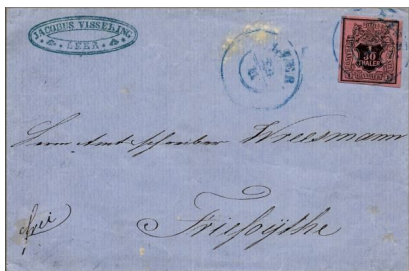 JACOBUS VISSERING
LEER.
LEER
1/30
THALER
Herrn Amtschreiber Wreesmann
frei
Friesoythe